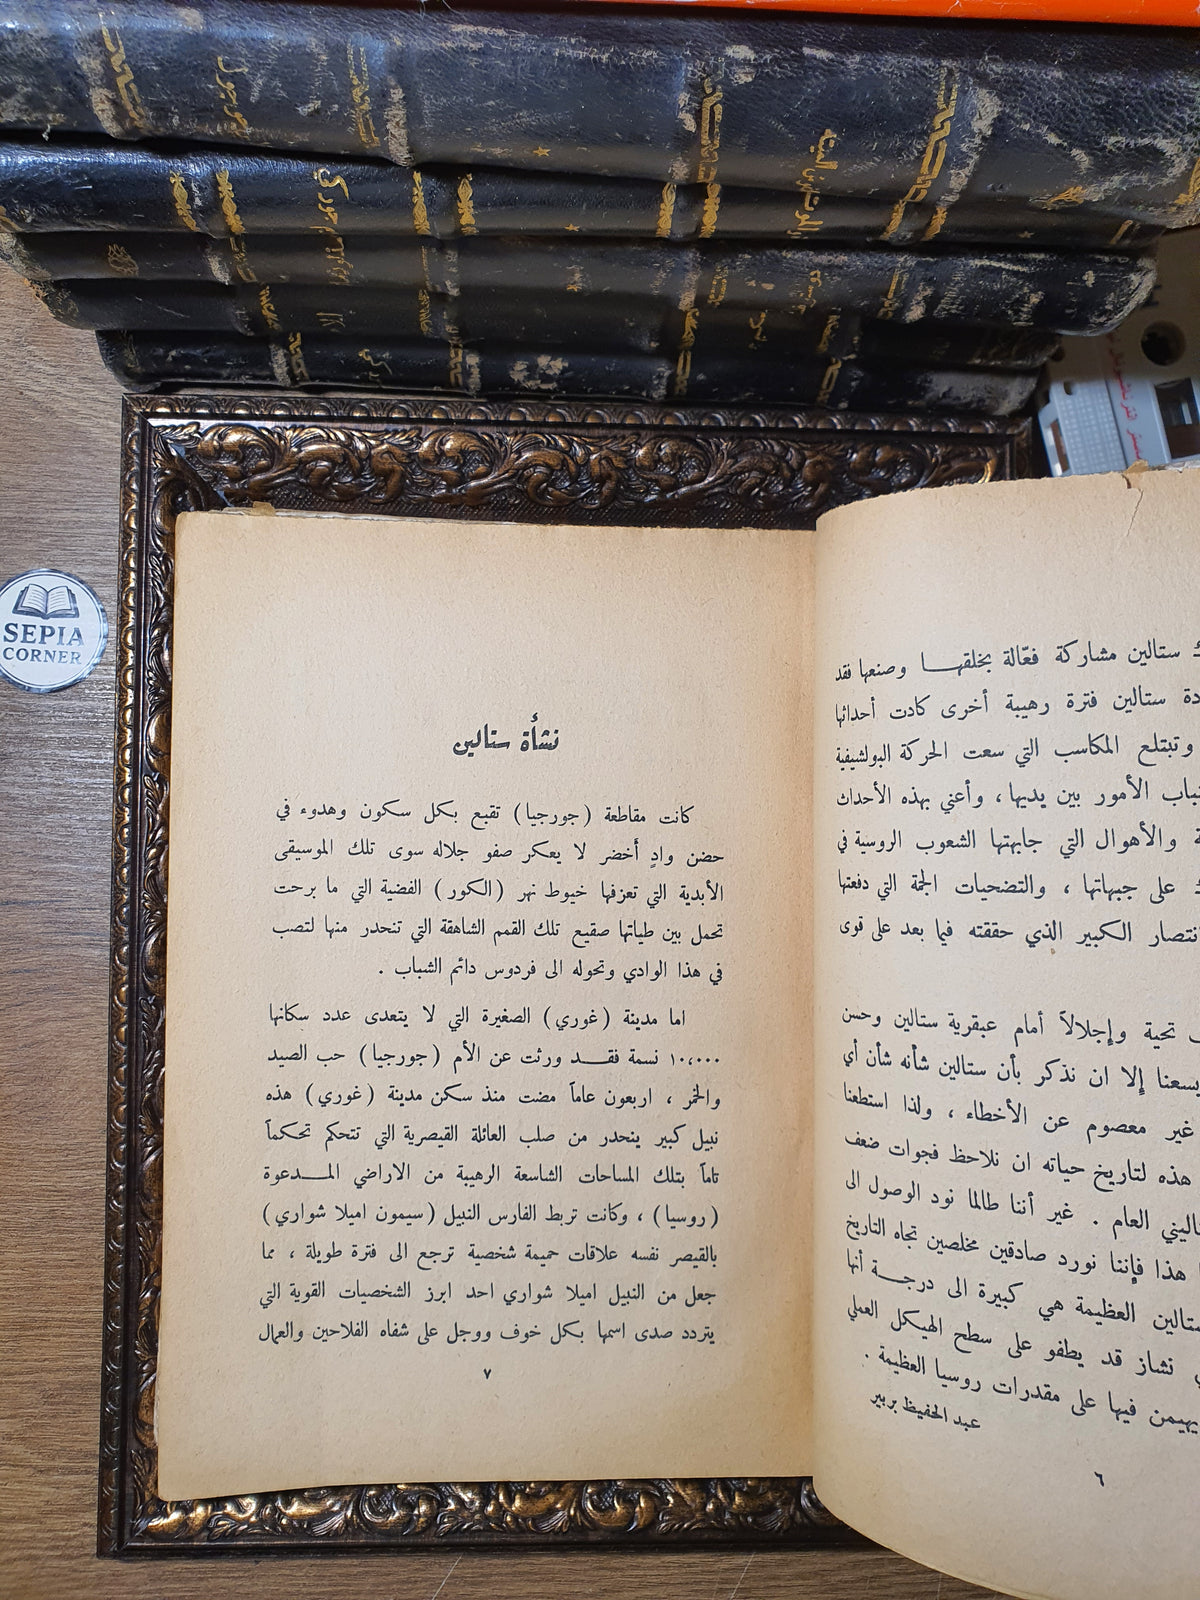 SEPIA
CORNER
ستالين مشاركة فعّالة بخلقهـــا وصنعها فقد
ستالين فترة رهيبة أخرى كادت أحداثها
وتبتلع المكاسب التي سعت الحركة البولشيفية
الأمور بين يديها ، وأعني بهذه الأحداث
والأهوال التي جابهتها الشعوب الروسية في
على جبهاتها ، والتضحيات الجمة التي دفعتها
الكبير الذي حققته فيما بعد على قوى
تحية وإجلالاً أمام عبقرية ستالين وحسن
إلا ان نذكر بأن ستالين شأنه شأن أي
غير معصوم عن الأخطاء ، ولذا استطعنا
هذه لتاريخ حياته ان نلاحظ فجوات ضعف
العام . غير أننا طالما نود الوصول الى
هذا فإننا نورد صادقين مخلصين تجاه التاريخ
العظيمة هي كبيرة الى درجـــة أنها
نشاز قد يطفو على سطح الهيكل العملي
يهيمن فيها على مقدرات روسيا العظيمة .
عبد الحفيظ بربير
٦
نشأة ستالين
كانت مقاطعة (جورجيا) تقبع بكل سكون وهدوء في
حضن وادٍ أخضر لا يعكر صفو جلاله سوى تلك الموسيقى
الأبدية التي تعزفها خيوط نهر (الكور) الفضية التي ما برحت
تحمل بين طياتها صقيع تلك القمم الشاهقة التي تنحدر منها لتصب
في هذا الوادي وتحوله الى فردوس دائم الشباب .
اما مدينة (غوري) الصغيرة التي لا يتعدى عدد سكانها
١٠،٠٠٠ نسمة فقـــد ورثت عن الأم (جورجيا) حب الصيد
والخمر ، اربعون عاماً مضت منذ سكن مدينة (غوري) هذه
نبيل كبير ينحدر من صلب العائلة القيصرية التي تتحكم تحكماً
تاماً بتلك المساحات الشاسعة الرهيبة من الاراضي المـــدعوة
(روسيا) ، وكانت تربط الفارس النبيل (سيمون اميلا شواري)
بالقيصر نفسه علاقات حميمة شخصية ترجع الى فترة طويلة ، مما
جعل من النبيل اميلا شواري احد ابرز الشخصيات القوية التي
يتردد صدى اسمها بكل خوف ووجل على شفاه الفلاحين والعمال
٧